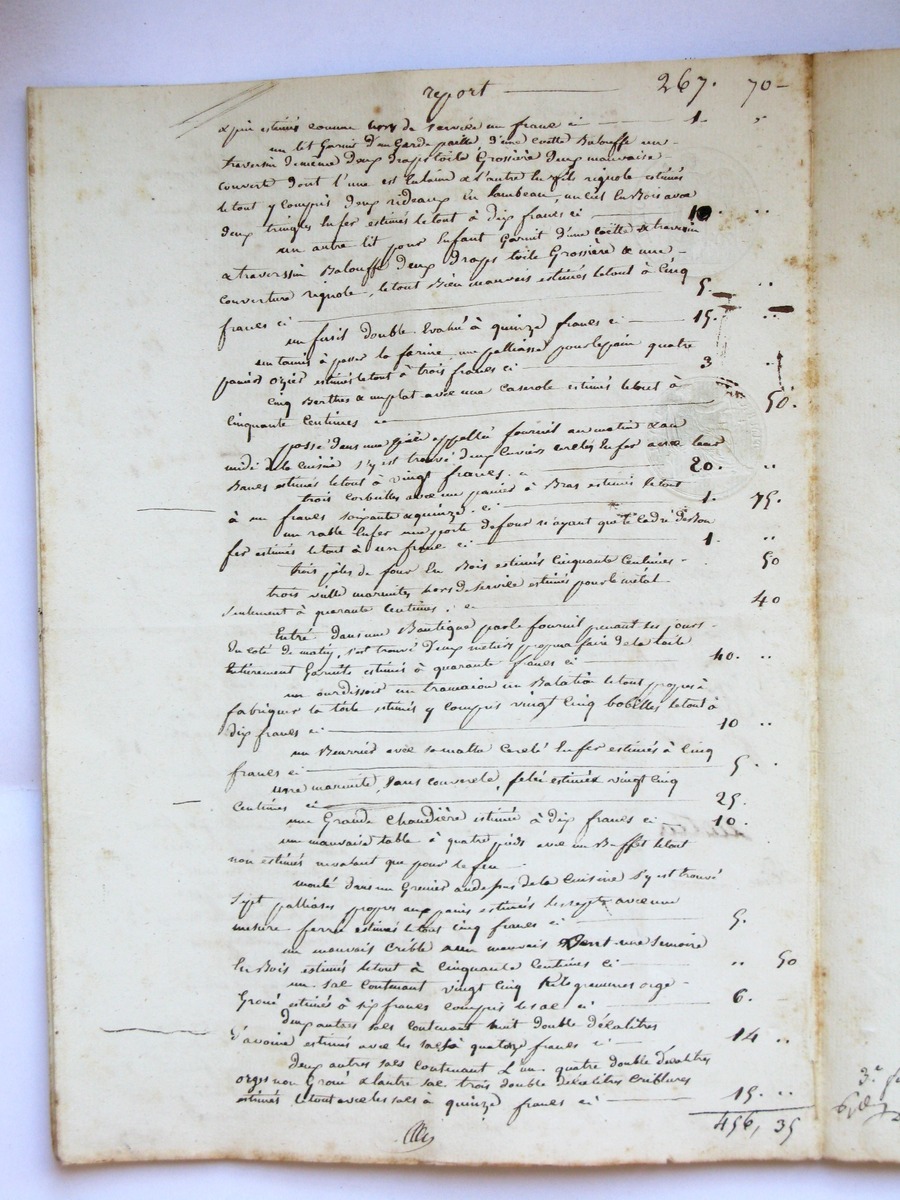 report 267. 70
& pin estimés comme hors de service un franc ci 1. "
un lit Garni d'un Garde paille, d'une coëtte Balouffe un
traversin de même deux draps toile Grossière deux mauvaise
couvert dont l'une est en laine & l'autre en fil rignole estimés
le tout y compris deux rideaux en lambeau, un ciel en Bois avec
deux tringles en fer estimés le tout à dix francs ci 10. ..
un autre lit pour enfant garnit d'une coëtte & traversin
& traverssin Balouffe deux draps toile Grossière & une
couverture rignole, le tout Bien mauvais estimés le tout à Cinq
francs ci 5. ..
un fusil double Evalué à quinze francs ci 15. ..
un tamis à passer la farine, une palliasse pour le pain quatre
panier ozier estimés le tout à trois francs ci 3 ..
Cinq Berthes & un plat avec une Caserole estimés le tout à
Cinquante Centimes ci 50.
passé dans une pièce appellée fournil au matin & au
midi de la Cuisine s'y est trouvé deux Cuviers cerclés en fer avec leur
Bancs estimés le tout à vingt francs. ci 20. ..
trois corbeilles avec un panier à Bras estimés le tout
à un francs soixante & quinze. ci 1. 75.
un rable en fer une porte de four n'ayant que le Cadre de Bon
fer estimés le tout à un franc ci 1. ..
trois pèles de four En Bois estimés Cinquante Centimes. 50
trois vielle marmites hors de Service estimés pour le métal
Seulement à quarante Centimes. ci 40
Entré dans une Boutique par le fournil prenant ses jours
du coté de matin, s'est trouvé deux métiers propre a faire de la toile
Entièrement Garnits estimés à quarante francs ci 40. ..
un ourdissoir un en le tout propre à
fabriquer la toile estimés y compris vingt Cinq bobilles le tout à
dix francs ci 10 ..
un Beurrier avec sa Cerclé En fer estimés à Cinq
francs ci 5. ..
une marmite, sans couvercle, felée estimée vingt Cinq
Centimes ci 25.
une Grande Chaudière estimée à dix francs ci 10.
un mauvaise table à quatre pieds avec un Buffet le tout
non estimés ne valant que pour le feu
monté dans un Grenier au dessus de la Cuisine s'y est trouvé
Sept palliasses propres aux pains estimées les sept avec une
mesure ferrée estimés le tout Cinq francs ci 5.
un mauvais Crible & un mauvais une Semoire
En Bois estimés le tout à Cinquante Centimes ci .. 50
un sac Contenant vingt Cinq Kilogrammes orge
Groué estimés à six francs compris le sac ci 6.
deux autres sacs contenant huit double décalitres
d'avoine estimés avec les sacs à quatorze francs ci 14 ..
deux autres sacs contenant L'un quatre double décalitres
orge non Groué & l'autre sac trois double décalitres Criblures
estimés le tout avec les sacs à quinze francs ci 15. ..
456, 35
3.e